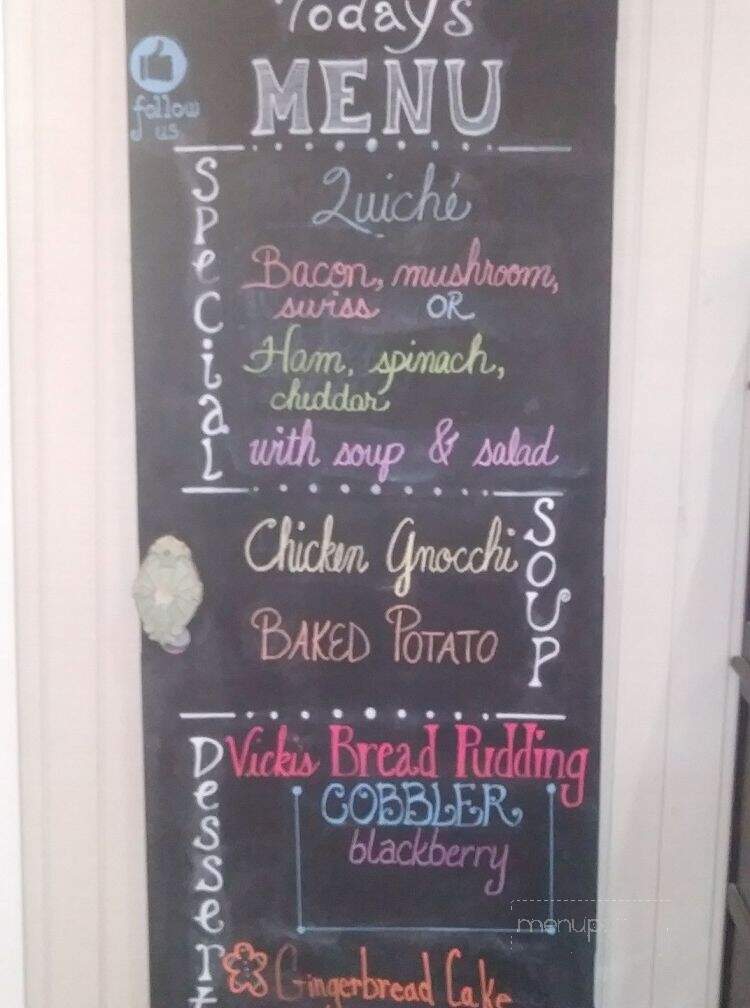 Todays
MENU
follow
us
Special
Quiché
Bacon, mushroom,
swiss OR
Ham, spinach,
cheddar
with soup & salad
SOUP
Chicken Gnocchi
BAKED POTATO
Dessert
Vickis Bread Pudding
COBBLER
blackberry
Gingerbread Cake